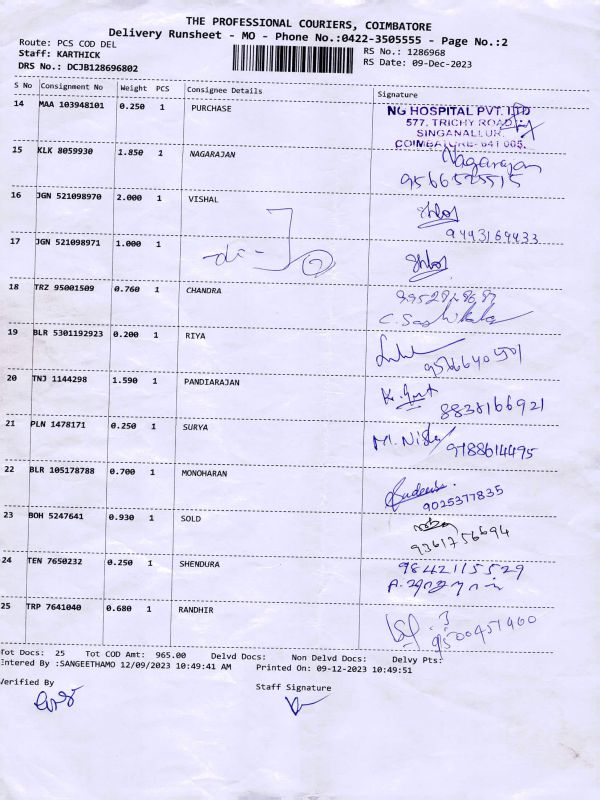 THE PROFESSIONAL COURIERS, COIMBATORE
Delivery Runsheet - MO - Phone No.:0422-3505555 - Page No.:2
Route: PCS COD DEL
Staff: KARTHICK
DRS No.: DCJB128696802
RS No.: 1286968
RS Date: 09-Dec-2023
S No Consignment No Weight PCS Consignee Details Signature
14 MAA 103948101 0.250 1 PURCHASE
NG HOSPITAL PVT. LTD
577, TRICHY ROAD
SINGANALLUR,
COIMBATORE-641 005.
15 KLK 8059930 1.850 1 NAGARAJAN Nagarajan
9566525515
16 JGN 521098970 2.000 1 VISHAL
9443169433
17 JGN 521098971 1.000 1
18 TRZ 95001509 0.760 1 CHANDRA
19 BLR 5301192923 0.200 1 RIYA
20 TNJ 1144298 1.590 1 PANDIARAJAN
8838166921
21 PLN 1478171 0.250 1 SURYA
9188614495
22 BLR 105178788 0.700 1 MONOHARAN
9025377835
23 BOH 5247641 0.930 1 SOLD
9361756694
24 TEN 7650232 0.250 1 SHENDURA 9842115529
25 TRP 7641040 0.680 1 RANDHIR
9500451960
Tot Docs: 25 Tot COD Amt: 965.00 Delvd Docs: Non Delvd Docs: Delvy Pts:
Intered By :SANGEETHAMO 12/09/2023 10:49:41 AM Printed On: 09-12-2023 10:49:51
Verified By Staff Signature